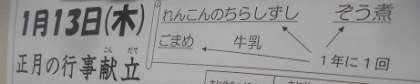 1月13日(木)
正月の行事献立
こんだて
れんこんのちらしずし
ぞう煮
ごまめ
牛乳
1年に1回